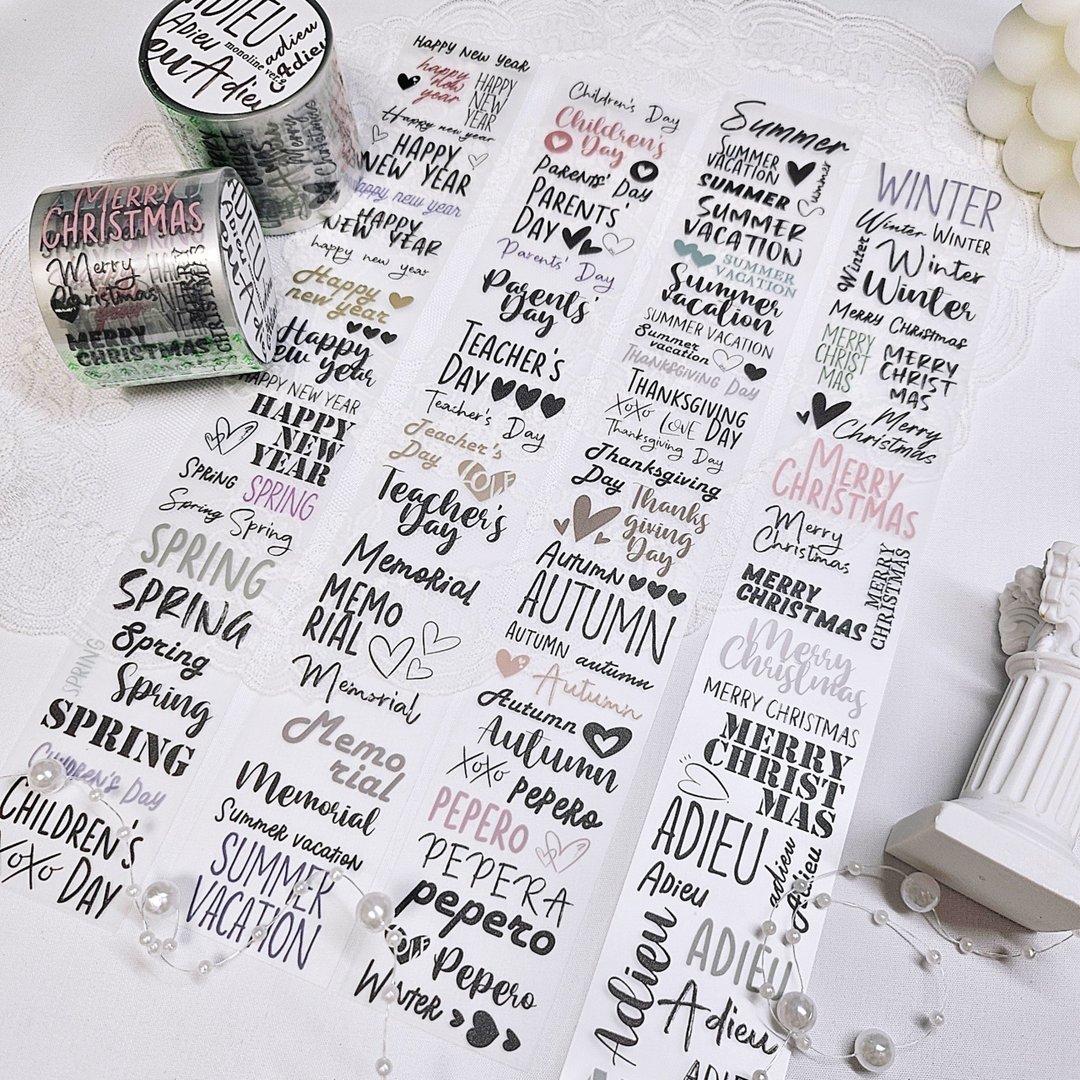 ADIEU
Adieu
monoline ver.
adieu
Adieu
Adieu
MERRY
CHRISTMAS
Merry
Christmas
MERRY
CHRISTMAS
HAPPY NEW YEAR
happy
new
year
HAPPY
NEW
YEAR
Happy new year
HAPPY
NEW YEAR
Happy new year
HAPPY
NEW YEAR
happy new year
Happy
new year
Happy
new year
HAPPY NEW YEAR
HAPPY
NEW
YEAR
SPRING SPRING
Spring Spring
SPRING
SPRING
SPRING
Spring
Spring
SPRING
CHILDREN'S DAY
CHILDREN'S
XOXO DAY
Children's Day
Children's
Day
PARENTS' DAY
PARENTS'
DAY
Parents' Day
Parents'
Day
TEACHER'S
DAY
Teacher's Day
Teacher's
Day LOVE
Teacher's
Day
Memorial
MEMO
RIAL
Memorial
Memo
rial
Memorial
Summer vacation
SUMMER
VACATION
Summer
SUMMER
VACATION
Summer
SUMMER
SUMMER
VACATION
SUMMER
VACATION
Summer
vacation
SUMMER VACATION
Summer
vacation
THANKSGIVING DAY
THANKSGIVING
XOXO LOVE DAY
Thanksgiving Day
Thanksgiving
Day
Thanks
giving
Day
AUTUMN
AUTUMN
AUTUMN autumn
Autumn
Autumn
Autumn
XOXO PEPERO
PEPERO
PEPERA
pepero
Pepero
WINTER
WINTER
Winter WINTER
Winter
Winter
Winter
Merry Christmas
MERRY
CHRIST
MAS
MERRY
CHRIST
MAS
Merry
Christmas
MERRY
CHRISTMAS
Merry
Christmas
MERRY
CHRISTMAS
MERRY
CHRISTMAS
Merry
Christmas
MERRY CHRISTMAS
MERRY
CHRIST
MAS
ADIEU
ADIEU
adieu
Adieu
Adieu
ADIEU
Adieu